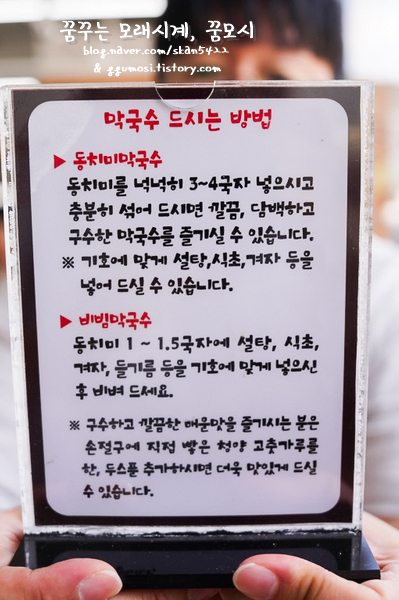 꿈꾸는 모래시계, 꿈모시
blog.naver.com/skan5422
& ggumosi.tistory.com
막국수 드시는 방법
▶ 동치미막국수
동치미를 넉넉히 3~4국자 넣으시고
충분히 섞어 드시면 깔끔, 담백하고
구수한 막국수를 즐기실 수 있습니다.
※ 기호에 맞게 설탕,식초,겨자 등을
넣어 드실 수 있습니다.
▶ 비빔막국수
동치미 1 ~ 1.5국자에 설탕, 식초,
겨자, 들기름 등을 기호에 맞게 넣으신
후 비벼 드세요.
※ 구수하고 깔끔한 매운맛을 즐기시는 분은
손절구에 직접 빻은 청양 고춧가루를
한, 두스푼 추가하시면 더욱 맛있게 드실
수 있습니다.